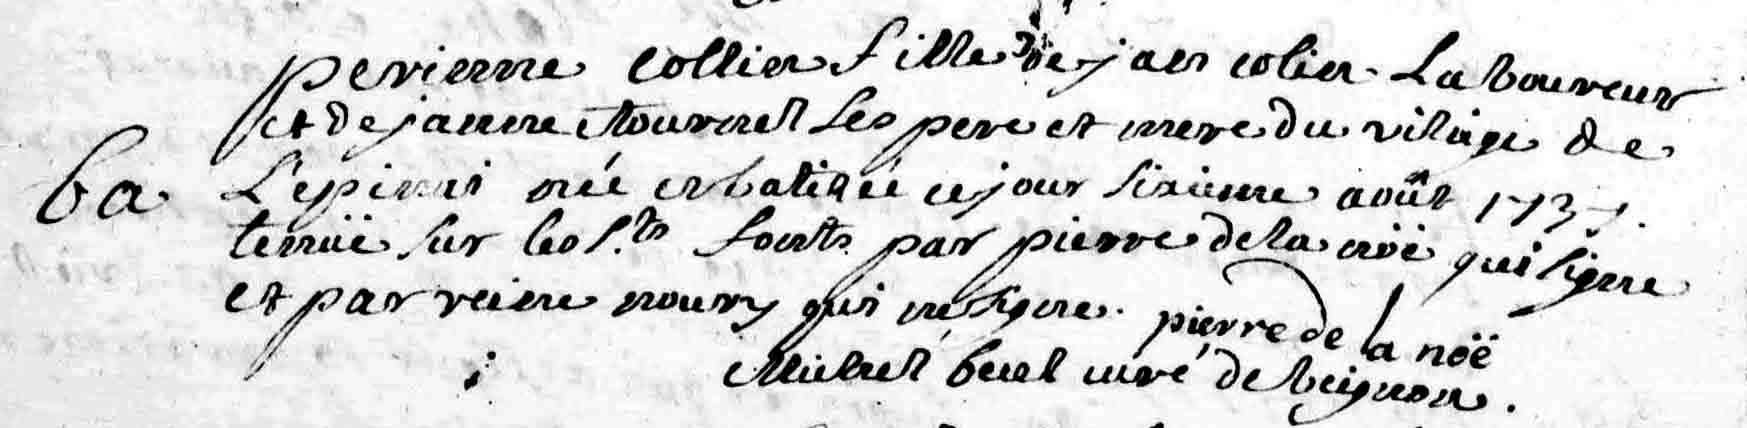 perienne collien fille de jan colien Laboureur
et de janne tournel ses pere et mere du vilage de
ba L'epinai née et batisée ce jour sixieme août 1737.
tenuë sur les s.ts fonts par pierre de la nöe qui signe
et par reine noury qui ne signe. pierre de la nöë
Michel curé de beignon.